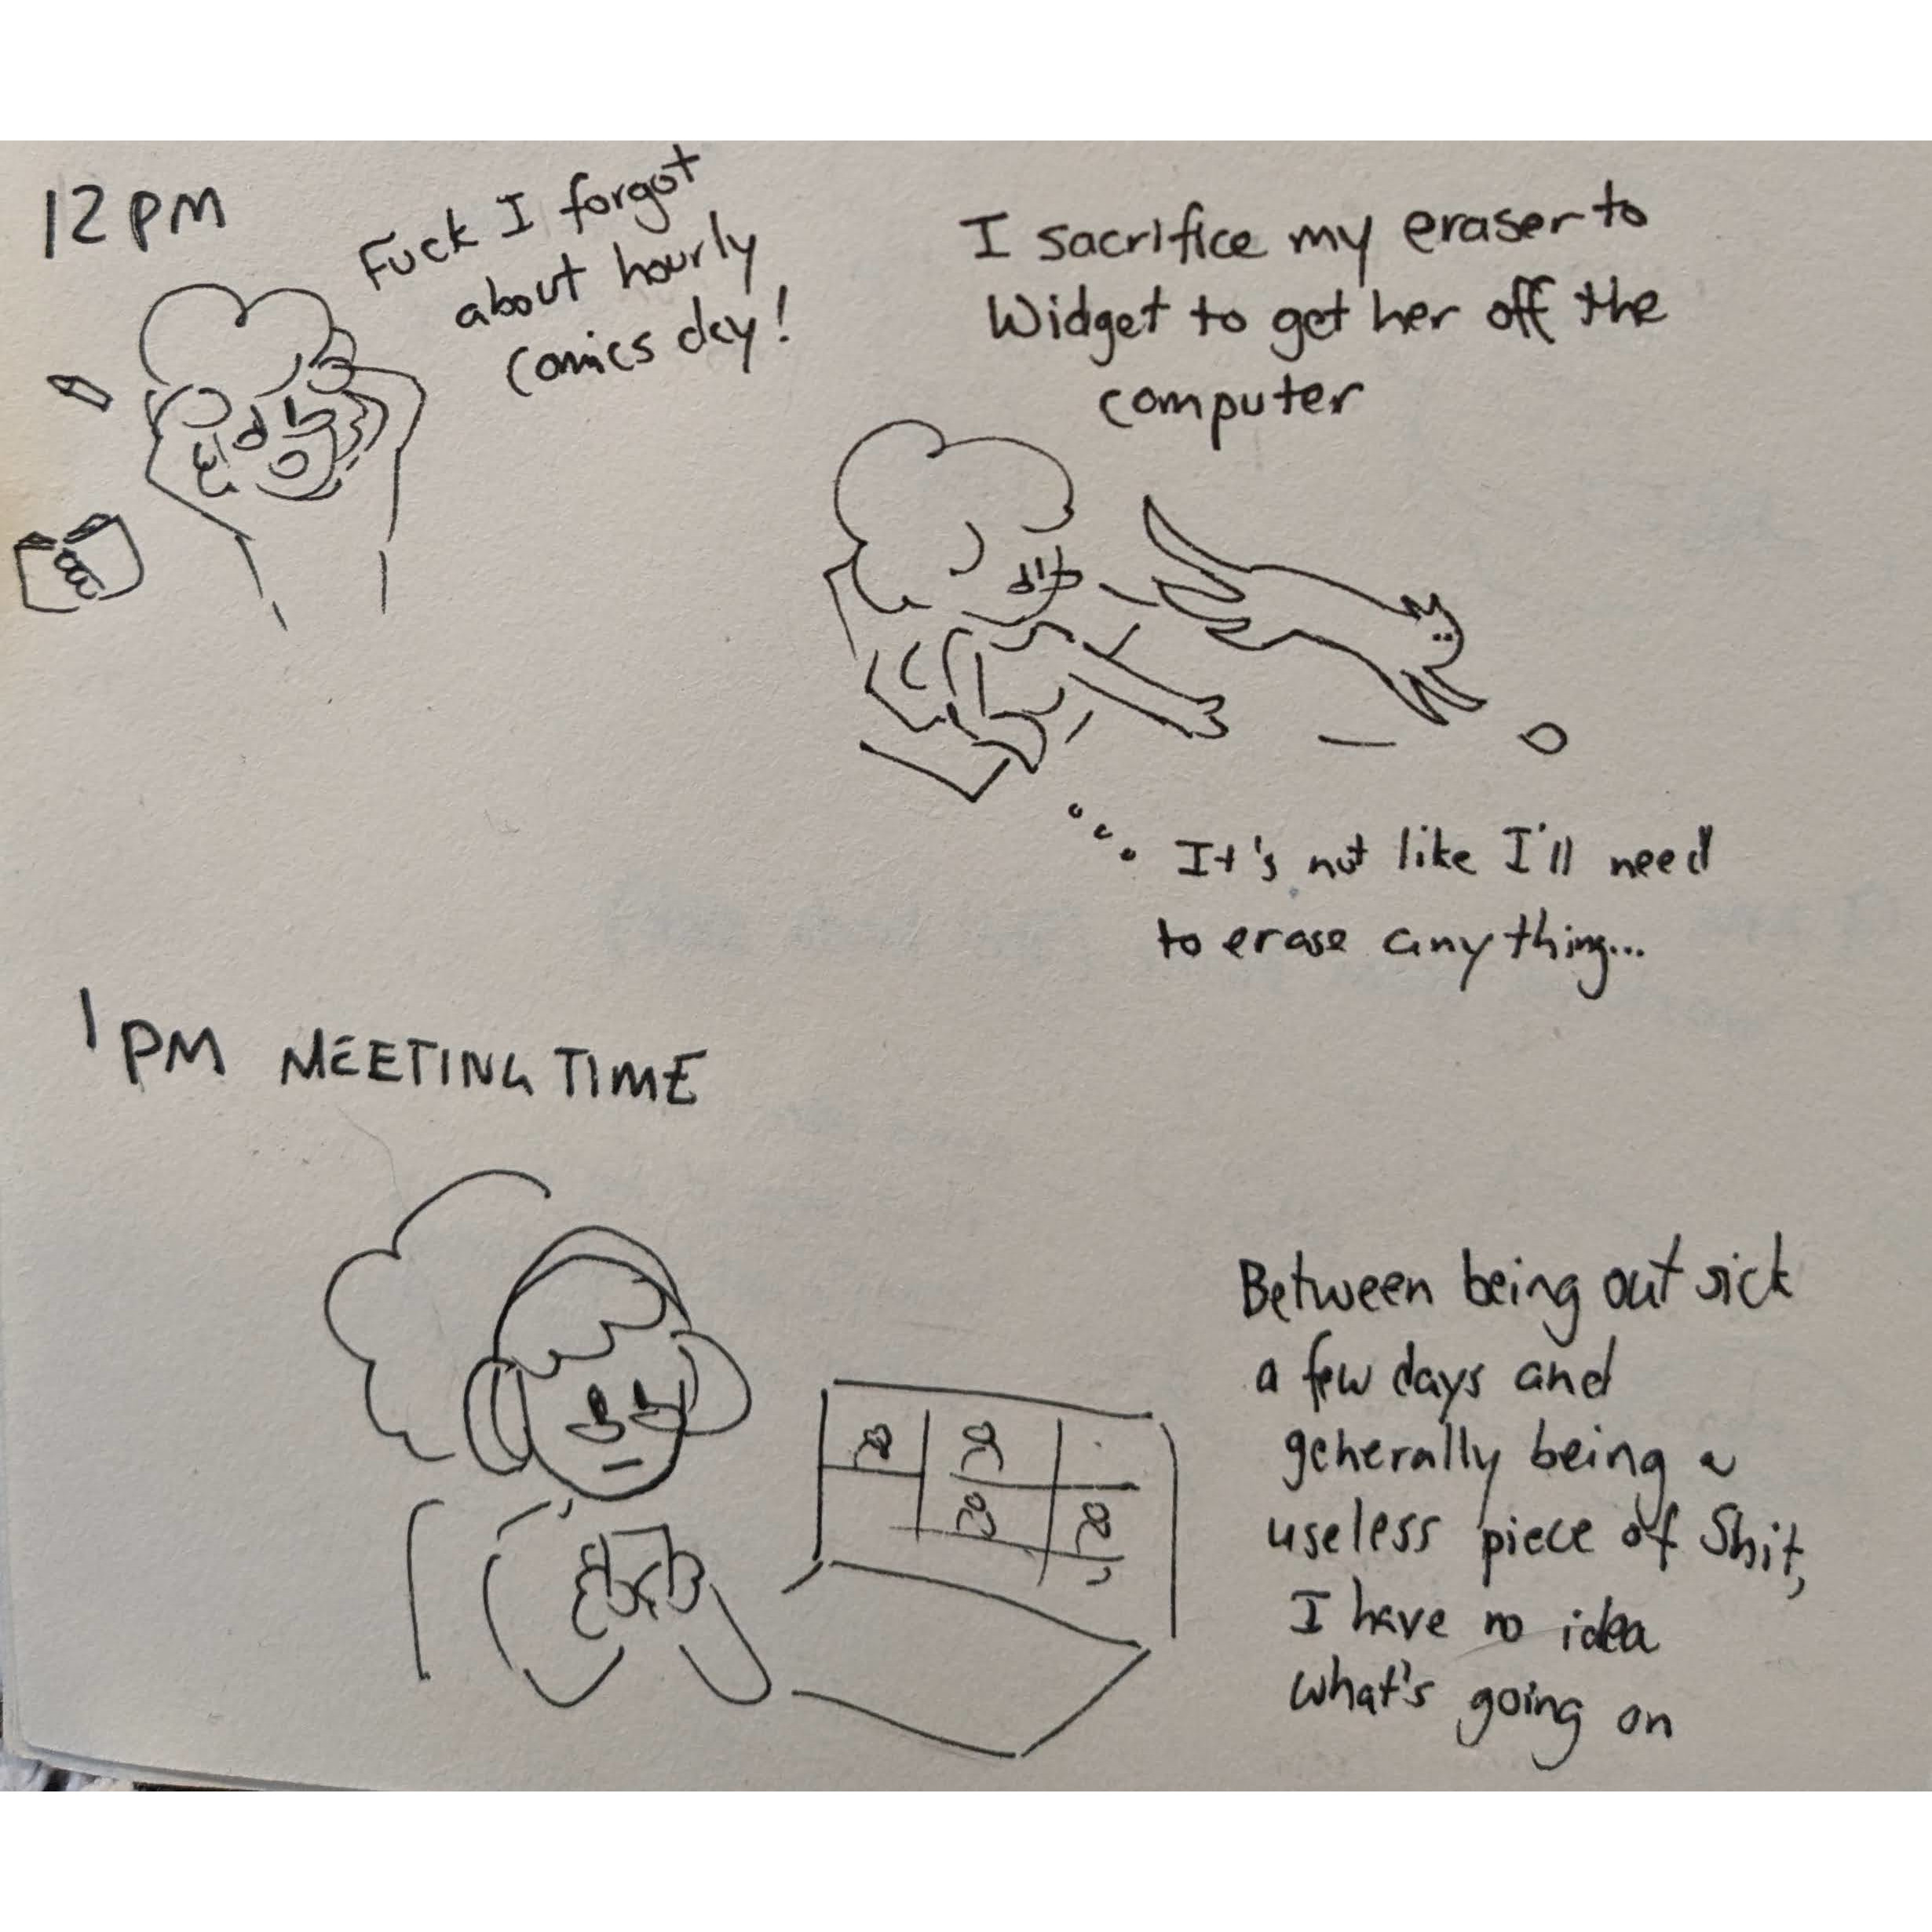 12 PM
Fuck I forgot
about hourly
comics day!
I sacrifice my eraser to
Widget to get her off the
computer
It's not like I'll need
to erase anything...
1 PM MEETING TIME
Between being out sick
a few days and
generally being a
useless piece of Shit,
I have no idea
what's going on